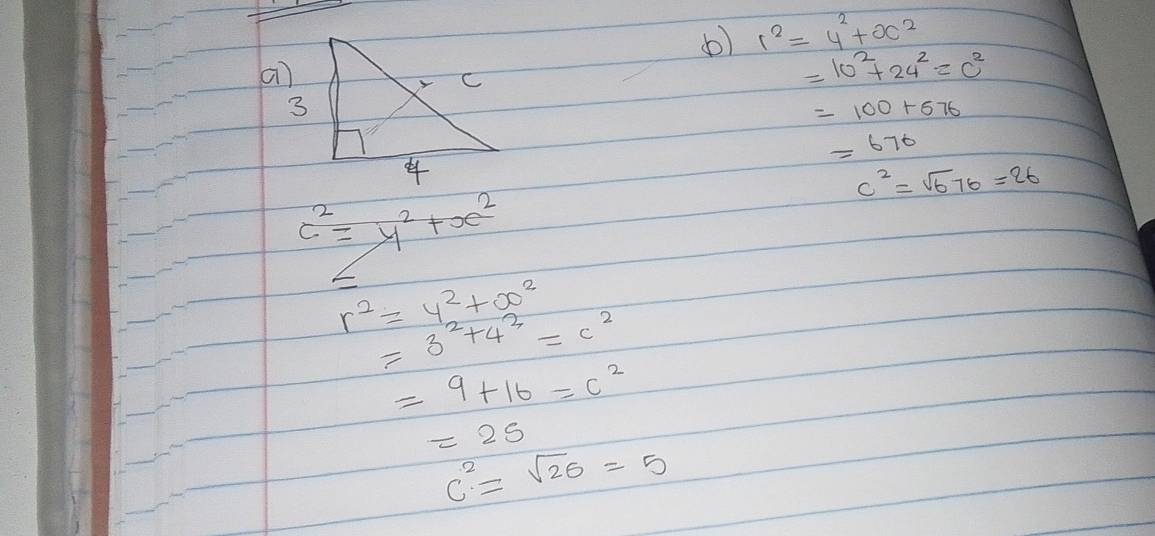 a)
3
c
4
c² = y² + x²
=
r² = y² + x²
= 3² + 4² = c²
= 9 + 16 = c²
= 25
c² = √25 = 5
b) r² = y² + x²
= 10² + 24² = c²
= 100 + 576
= 676
c² = √676 = 26